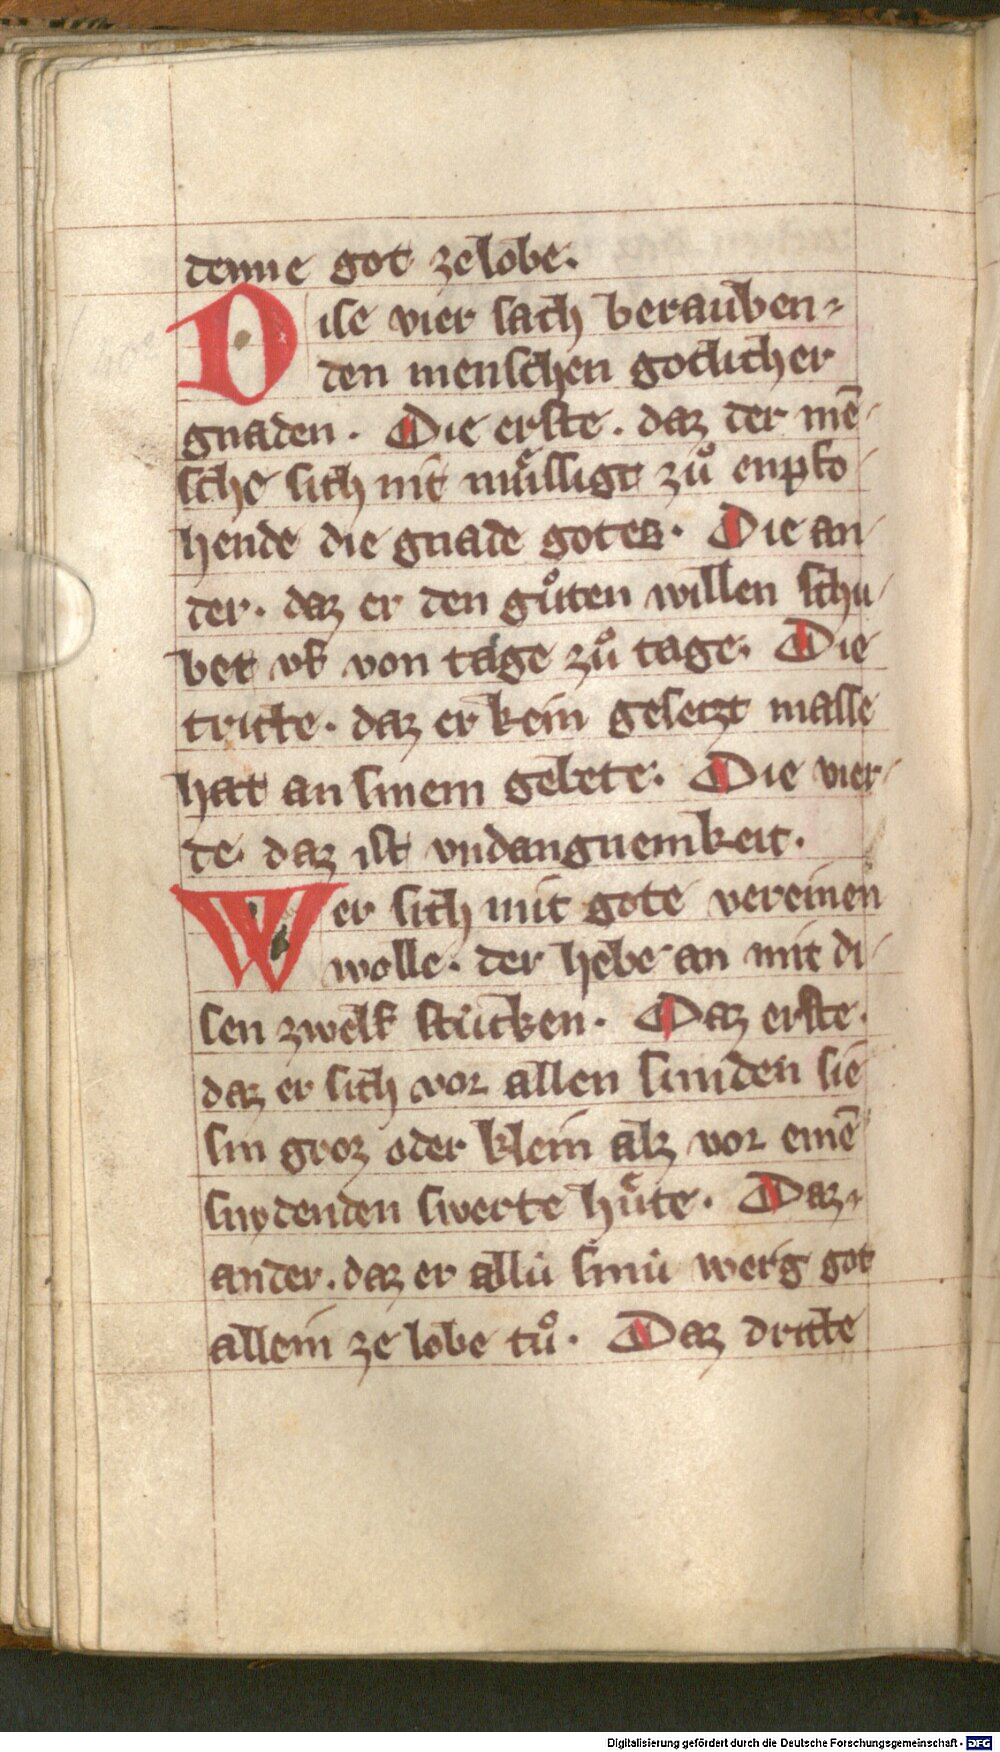 denne got ze lobe.
Dise vier sach berauben-
den menschen gotlicher
gnaden. Die erste. daz der mē-
sche sich nit mu̇ssigt zuͦ enpfo-
hende die gnade gotes. Die an-
der. daz er den guͦten willen schu-
bet vf von tage zuͦ tage. Die
tritte. daz er kein gesetzt masse
hat an sinem gebete. Die vier-
te daz ist vndangnemkeit.
Wer sich mit gote vereinen
wolle. der hebe an mit di-
sen zwelf stucken. Daz erste.
daz er sich vor allen sunden sie
sin groz oder klein alz vor einē
snydenden swerte huͤte. Daz
ander. daz er allu̇ sinu̇ werg got
allein ze lobe tuͦ. Daz dritte
Digitalisierung gefördert durch die Deutsche Forschungsgemeinschaft - DFG